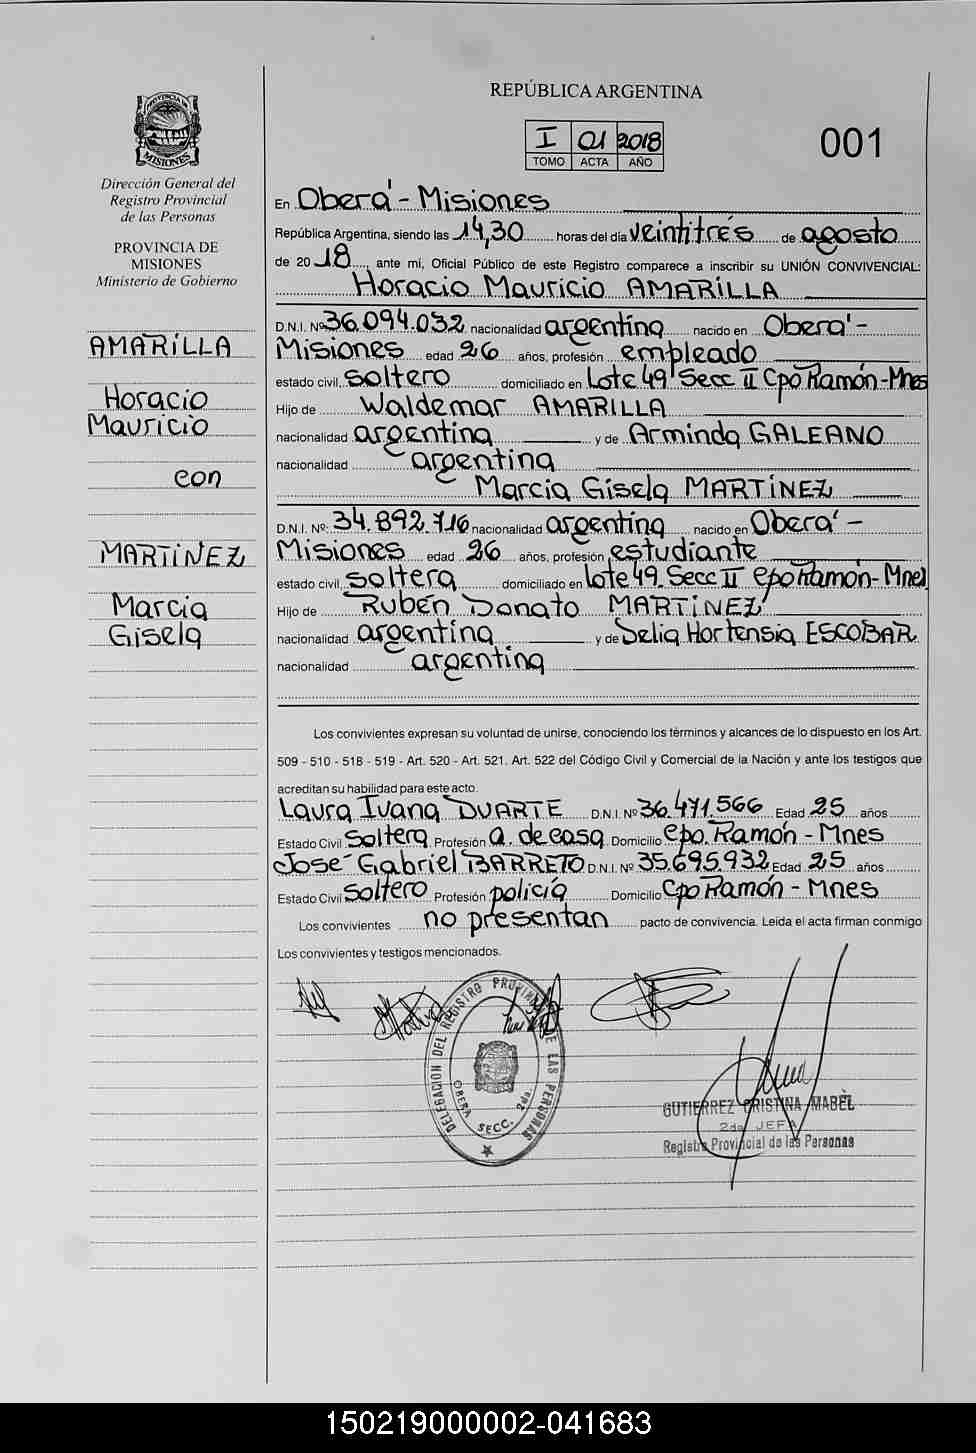 REPÚBLICA ARGENTINA
PROVINCIA DE
MISIONES
I 01 2018
TOMO ACTA AÑO
001
Dirección General del
Registro Provincial
de las Personas
PROVINCIA DE
MISIONES
Ministerio de Gobierno
AMARILLA
Horacio
Mauricio
con
MARTINEZ
Marcia
Gisela
En Oberá - Misiones
República Argentina, siendo las 14,30 horas del día veintitrés de agosto
de 2018, ante mi, Oficial Público de este Registro comparece a inscribir su UNIÓN CONVIVENCIAL:
Horacio Mauricio AMARILLA
D.N.I. Nº 36.094.032 nacionalidad argentina nacido en Oberá -
Misiones edad 26 años, profesión empleado
estado civil soltero domiciliado en Lote 49 Secc II Cpo Ramón - Mnes
Hijo de Waldemar AMARILLA
nacionalidad argentina y de Arminda GALEANO
nacionalidad argentina
Marcia Gisela MARTINEZ
D.N.I. Nº: 34.892.716 nacionalidad argentina nacido en Oberá -
Misiones edad 26 años, profesión estudiante
estado civil soltera domiciliado en Lote 49 Secc II Cpo Ramón - Mnes
Hijo de Rubén Donato MARTINEZ
nacionalidad argentina y de Delia Hortensia ESCOBAR
nacionalidad argentina
Los convivientes expresan su voluntad de unirse, conociendo los términos y alcances de lo dispuesto en los Art.
509 - 510 - 518 - 519 - Art. 520 - Art. 521. Art. 522 del Código Civil y Comercial de la Nación y ante los testigos que
acreditan su habilidad para este acto.
Laura Ivana DUARTE D.N.I. Nº 36.471.566 Edad 25 años
Estado Civil Soltera Profesión a. de casa Domicilio Cpo. Ramón - Mnes
José Gabriel BARRETO D.N.I. Nº 35.695.932 Edad 25 años
Estado Civil Soltero Profesión policía Domicilio Cpo Ramón - Mnes
Los convivientes no presentan pacto de convivencia. Leida el acta firman conmigo
Los convivientes y testigos mencionados.
DELEGACION DEL REGISTRO PROVINCIAL DE LAS PERSONAS
OBERA SECC. 2da.
GUTIERREZ CRISTINA MABEL
2da JEFA
Registro Provincial de las Personas
150219000002-041683